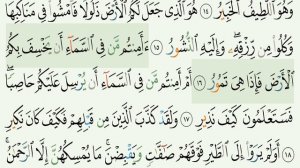 وَهُوَ ٱللَّطِيفُ ٱلْخَبِيرُ ١٤ هُوَ ٱلَّذِى جَعَلَ لَكُمُ ٱلْأَرْضَ ذَلُولًا فَٱمْشُوا۟ فِى مَنَاكِبِهَا
وَكُلُوا۟ مِن رِّزْقِهِۦ ۖ وَإِلَيْهِ ٱلنُّشُورُ ١٥ ءَأَمِنتُم مَّن فِى ٱلسَّمَآءِ أَن يَخْسِفَ بِكُمُ
ٱلْأَرْضَ فَإِذَا هِىَ تَمُورُ ١٦ أَمْ أَمِنتُم مَّن فِى ٱلسَّمَآءِ أَن يُرْسِلَ عَلَيْكُمْ حَاصِبًا ۖ
فَسَتَعْلَمُونَ كَيْفَ نَذِيرِ ١٧ وَلَقَدْ كَذَّبَ ٱلَّذِينَ مِن قَبْلِهِمْ فَكَيْفَ كَانَ نَكِيرِ
١٨ أَوَلَمْ يَرَوْا۟ إِلَى ٱلطَّيْرِ فَوْقَهُمْ صَٰٓفَّٰتٍ وَيَقْبِضْنَ ۚ مَا يُمْسِكُهُنَّ إِلَّا ٱلرَّحْمَٰنُ ۚ